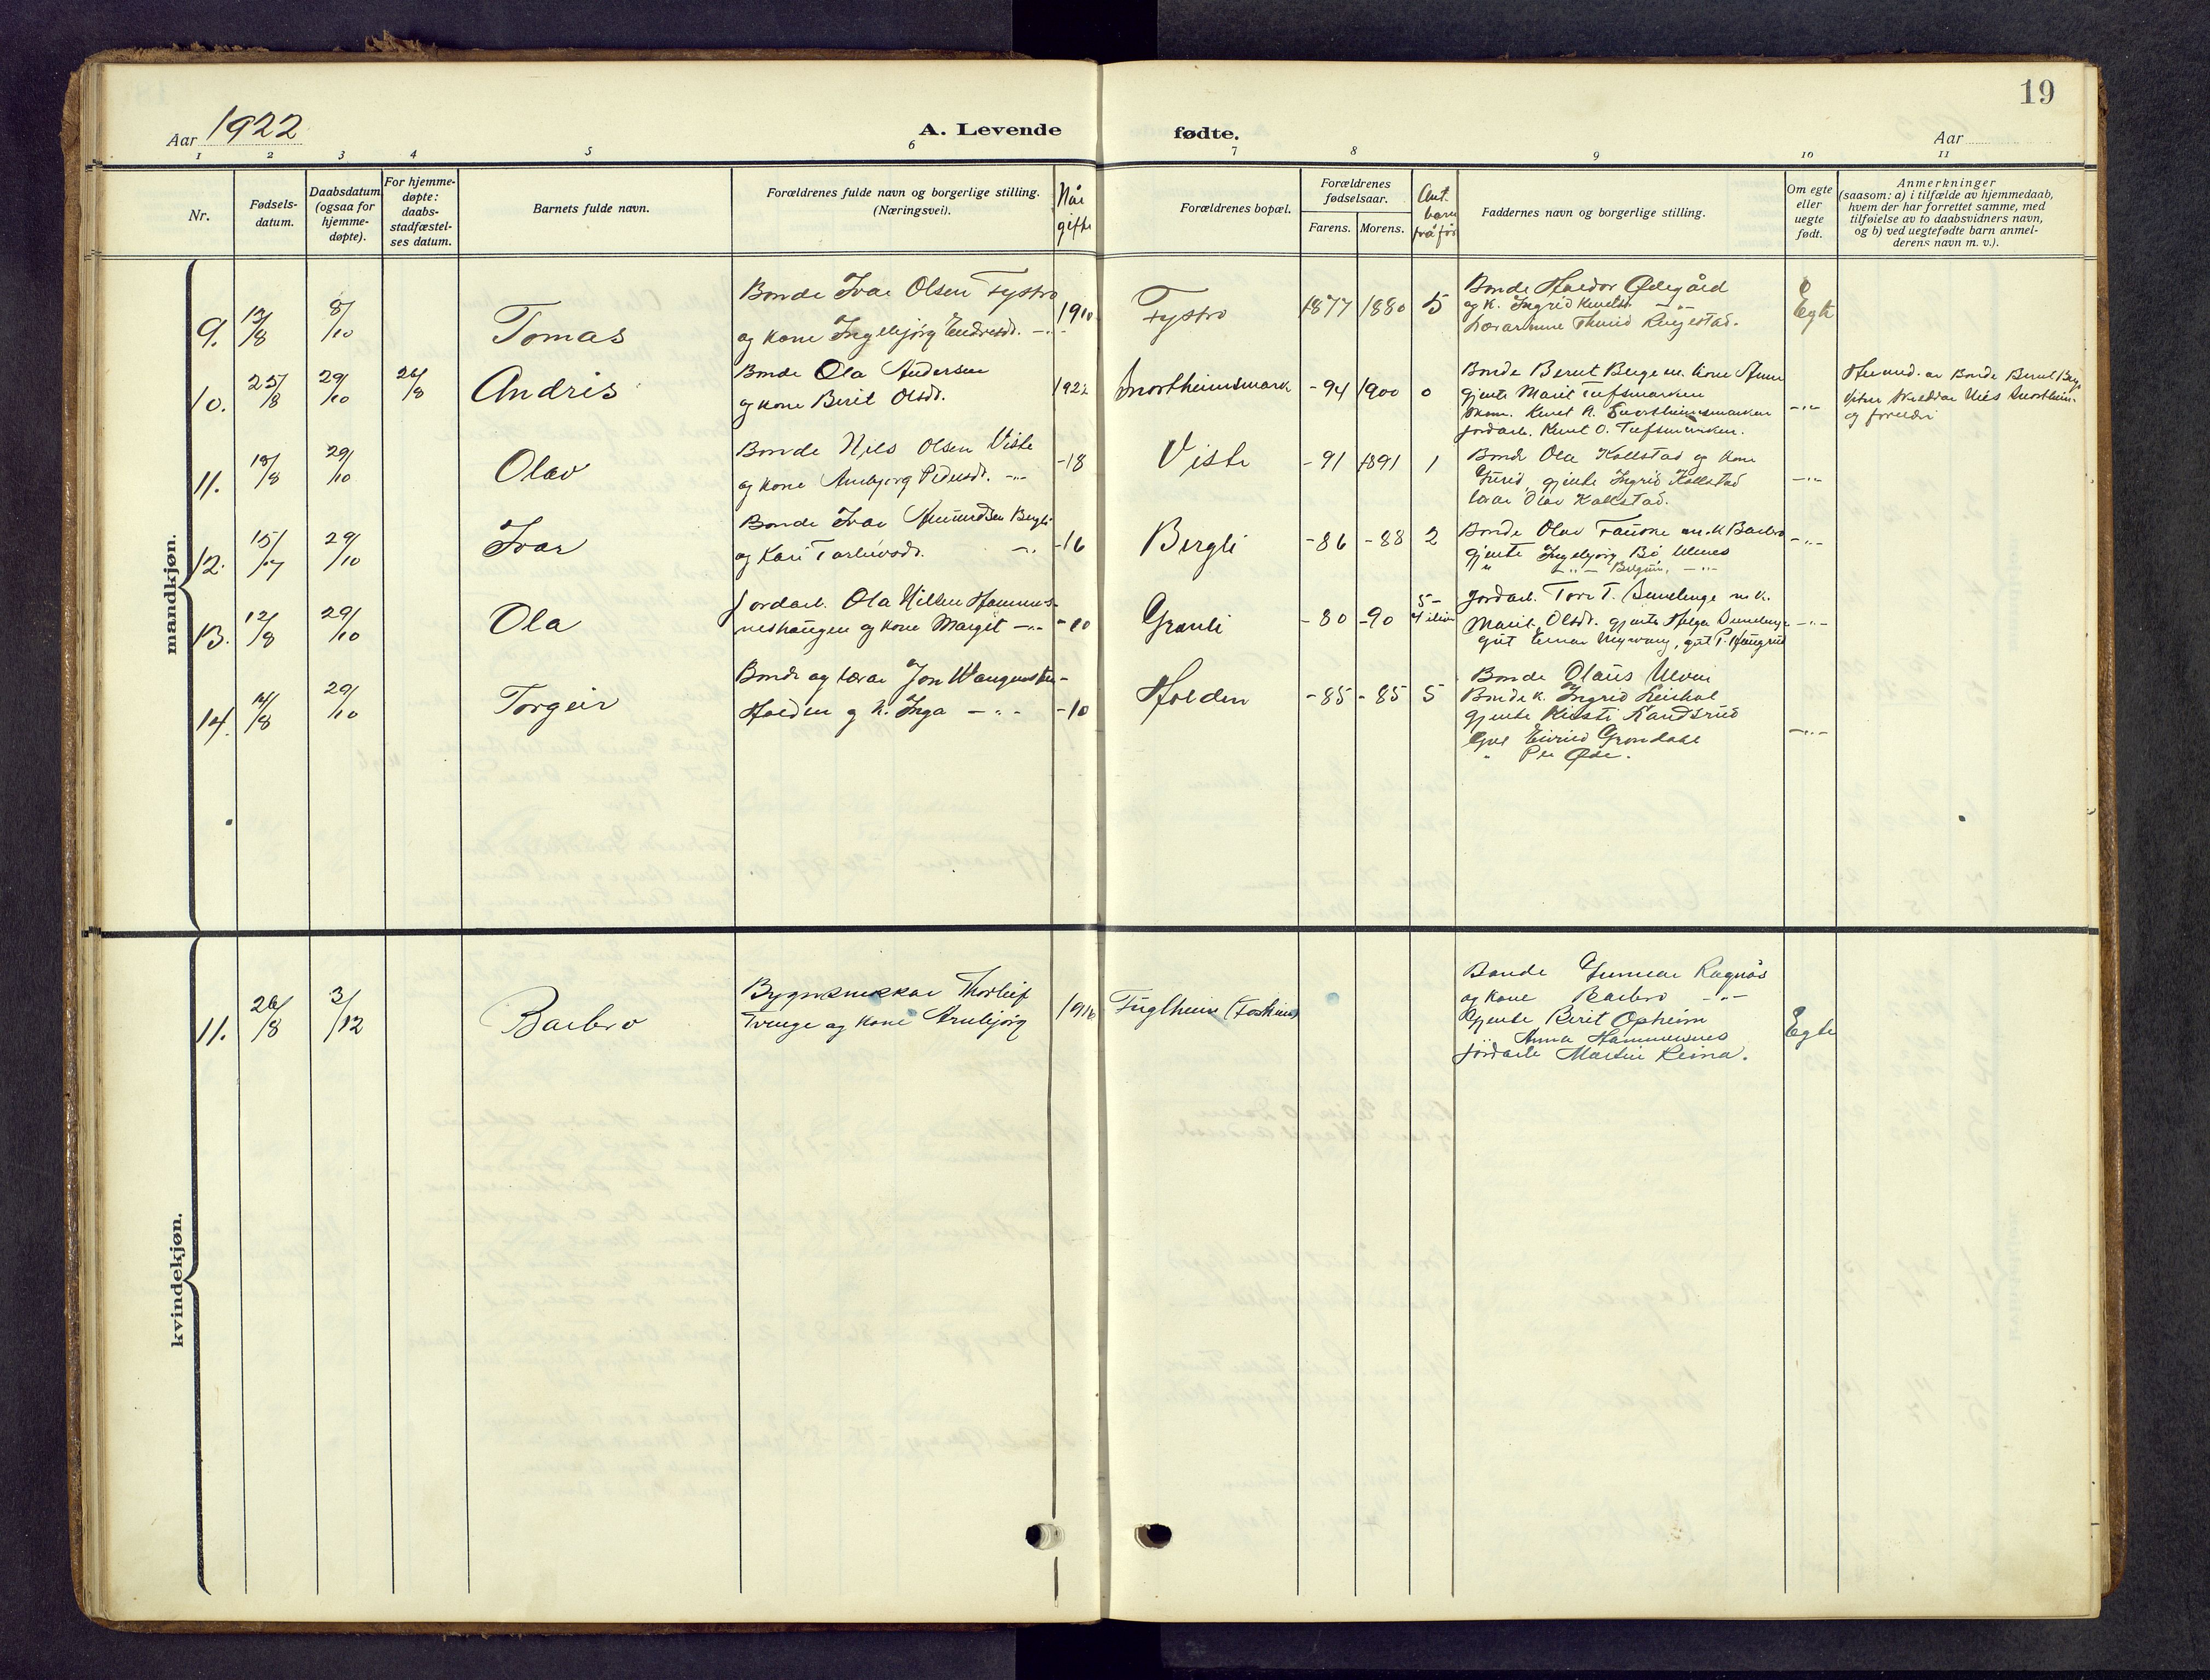 19
Aar 1922
A. Levende
fødte.
Aar
1 2 3 4 5 6 7 8 9 10 11
Nr.
Fødsels-
datum.
Daabsdatum
(ogsaa for
hjemme-
døpte).
For hjemme-
døpte:
daabs-
stadfæstel-
ses datum.
Barnets fulde navn.
Forældrenes fulde navn og borgerlige stilling.
(Næringsvei).
Når
gifte
Forældrenes bopæl.
Forældrenes
fødselsaar.
Farens. Morens.
Ant.
barn
frå før
Faddernes navn og borgerlige stilling.
Om egte
eller
uegte
født.
Anmerkninger
(saasom: a) i tilfælde av hjemmedaab,
hvem der har forrettet samme, med
tilføielse av to daabsvidners navn,
og b) ved uegtefødte barn anmel-
derens navn m. v.).
mandkjøn.
9. 13/8 8/10 Tomas
Bonde Ivar Olsen Fystro
og kone Ingebjørg Endresd. -"-
1910 Fystro 1877 1880 5
Bonde Haldor Ødegård
og k. Ingrid Knutsd. -"-
Lærarinne Thurid Ringestad.
Egte
10. 25/8 29/10 26/8 Andris
Bonde Ola Andersen
og kone Berit Olsd.
1922 Snortheimsmark -94 1900 0
Bonde Bernt Berge m. kone Anne
gjente Marit Tufsmarken
Knut N. Snortheimsmarken
jordarb. Knut O. Tufsmarken.
-"-
Bonde Bernt Berge
Nils Snortheim
og foreldri
11. 18/8 29/10 Olav
Bonde Nils Olsen Viste
og kone Anbjørg Pedersd. -"-
-18 Viste -91 1891 1
Bonde Ola Kollstad og kone
Gurid, gjente Ingrid Kollstad
lærar Olav Kollstad.
-"-
12. 15/7 29/10 Ivar
Bonde Ivar Amundsen Bergli
og Kari Torleivsd. -"-
-16 Bergli -86 -88 2
Bonde Olav Fauske m. k Barbro
gjente Ingebjørg Bø Ulnes
" -"- -"-
-"-
13. 12/8 29/10 Ola
Jordarb. Ola Nilsen Hammers-
neshaugen og kone Margit -"-
-10 Granli -80 -90 5-
4 i live
Jordarb. Tore T. m. k.
Marit Olsd. gjente Helga
gut Einar Nyvang, gut P. Haugrud
-"-
14. 14/8 29/10 Torgeir
Bonde og lærar Jon Wangensten-
Holden og k. Inga -"-
-10 Holden -85 -85 5
Bonde Olaus Ulven
Bonde k. Ingrid Leinhol
gjente Kirsti Randsrud
Gut Eivind Grøndahl
" Per Øde.
-"-
kvindekjøn.
11. 26/8 3/12 Barbro
Bygnsnekkar Thorleif
Tvenge og kone Arnbjørg
1916 Fuglheim (Fosheim)
Bonde Gunnar Rognås
og kone Barbro -"-
Gjente Berit Opheim
" Anna Hammersnes
jordarb Martin Reina.
Egte